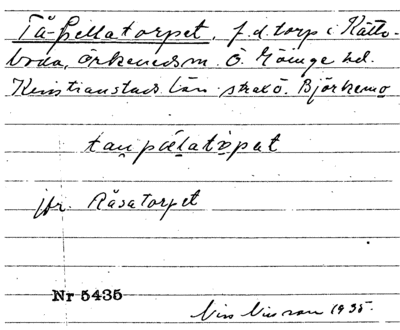 Tå-Pellatorpet, f.d. torp i Kätto-
boda, Örkeneds sn. Ö. Göinge hd.
Kristianstads län strax ö. Björkemo
taupälatåpat
jfr. Råsatorpet
Nr 5435
1935.